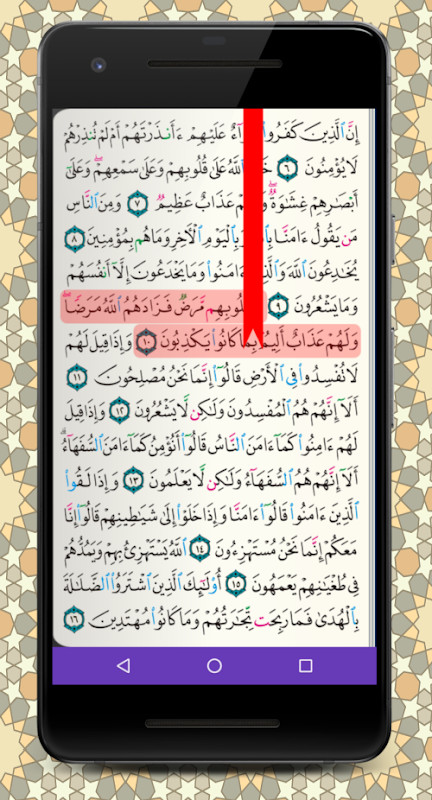 إِنَّ ٱلَّذِينَ كَفَرُوا۟ عَلَيْهِمْ ءَأَنذَرْتَهُمْ أَمْ لَمْ تُنذِرْهُمْ
لَا يُؤْمِنُونَ ٦ ٱللَّهُ عَلَىٰ قُلُوبِهِمْ وَعَلَىٰ سَمْعِهِمْ ۖ وَعَلَىٰٓ
أَبْصَٰرِهِمْ غِشَٰوَةٌ ۖ عَذَابٌ عَظِيمٌ ٧ وَمِنَ ٱلنَّاسِ
مَن يَقُولُ ءَامَنَّا وَبِٱلْيَوْمِ ٱلْـَٔاخِرِ وَمَا هُم بِمُؤْمِنِينَ ٨
يُخَٰدِعُونَ ٱللَّهَ ءَامَنُوا۟ وَمَا يَخْدَعُونَ إِلَّآ أَنفُسَهُمْ
وَمَا يَشْعُرُونَ ٩ مَّرَضٌ فَزَادَهُمُ ٱللَّهُ مَرَضًا ۖ
وَلَهُمْ عَذَابٌ أَلِيمٌۢ بِمَا كَانُوا۟ يَكْذِبُونَ ١٠ وَإِذَا قِيلَ لَهُمْ
لَا تُفْسِدُوا۟ فِى ٱلْأَرْضِ قَالُوٓا۟ إِنَّمَا نَحْنُ مُصْلِحُونَ ١١
أَلَآ إِنَّهُمْ هُمُ ٱلْمُفْسِدُونَ وَلَٰكِن لَّا يَشْعُرُونَ ١٢ وَإِذَا قِيلَ
لَهُمْ ءَامِنُوا۟ كَمَآ ءَامَنَ ٱلنَّاسُ قَالُوٓا۟ أَنُؤْمِنُ كَمَآ ءَامَنَ ٱلسُّفَهَآءُ ۗ
أَلَآ إِنَّهُمْ هُمُ ٱلسُّفَهَآءُ وَلَٰكِن لَّا يَعْلَمُونَ ١٣ وَإِذَا لَقُوا۟
ٱلَّذِينَ ءَامَنُوا۟ قَالُوٓا۟ ءَامَنَّا وَإِذَا خَلَوْا۟ إِلَىٰ شَيَٰطِينِهِمْ قَالُوٓا۟ إِنَّا
مَعَكُمْ إِنَّمَا نَحْنُ مُسْتَهْزِءُونَ ١٤ ٱللَّهُ يَسْتَهْزِئُ بِهِمْ وَيَمُدُّهُمْ
فِى طُغْيَٰنِهِمْ يَعْمَهُونَ ١٥ أُو۟لَٰٓئِكَ ٱلَّذِينَ ٱشْتَرَوُا۟ ٱلضَّلَٰلَةَ
بِٱلْهُدَىٰ فَمَا رَبِحَت تِّجَٰرَتُهُمْ وَمَا كَانُوا۟ مُهْتَدِينَ ١٦